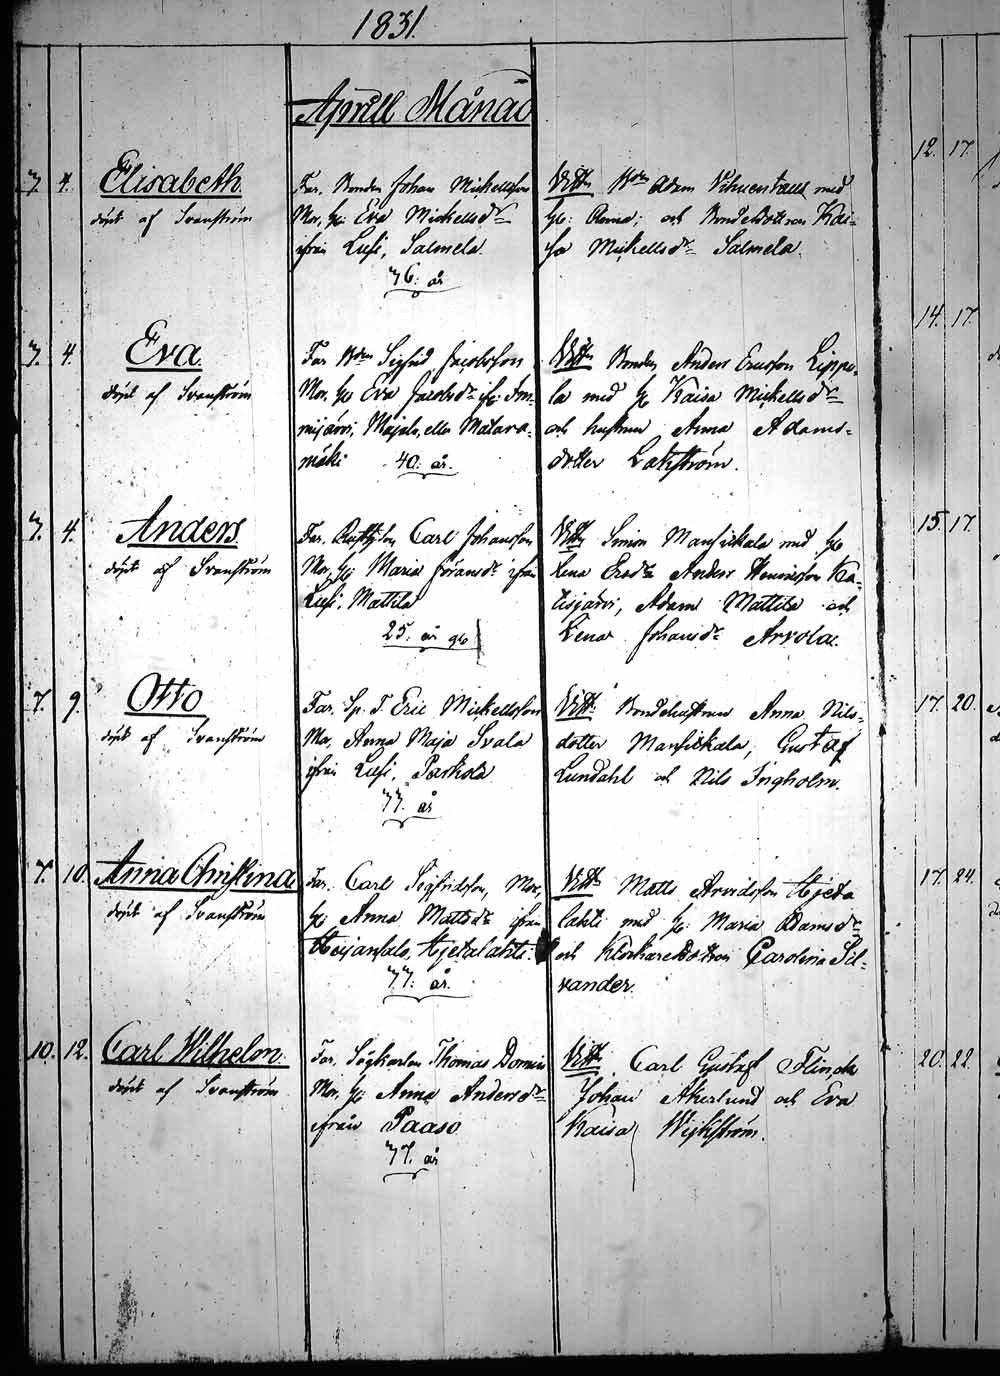 1831.
Aprill Månad
7. 4. Elisabeth.
döpt af Svanström
Far. Bonden Johan Mickellsson
Mor, h: Eva Mickellsdr
ifrån Lusi, Salmela.
Vittn Bdn Adam Vihuentaus med
h: Anna; och Bondedottren Kai-
sa Mickellsdr Salmela.
7. 4. Eva
döpt af Svanström
Far Bdn Sigfrid Jacobsson
Mor, h: Eva Jacobsdr
Majala, eller Matara-
mäki 40. år.
Vittn Bonden Anders Ericsson Lippo-
la med h: Kaisa Mickellsdr
och hustrun Anna Adams-
dotter Lakström.
7. 4. Anders
döpt af Svanström
Far. Carl Johansson
Mor, h: Maria Göransdr ifrån
Lusi, Mattila
25. år
Vittn Simon Mansickala med h:
Lena Ersdr Anders Henricsson Ka-
tisjärvi, Adam Mattila och
Lena Johansdr Arvola.
7. 9. Otto
döpt af Svanström
Far. Sp. T. Eric Mickellsson
Mo, Anna Maja Svala
ifrån Lusi, Paskola
77. år
Vittn Bondehustrun Anna Nils-
dotter Mansickala, Gustaf
Lundahl och Nils Ingholm.
7. 10. Anna Christina
döpt af Svanström
Far, Carl Sigfridsson, Mor,
h: Anna Mattsdr ifrån
Hietalahti.
77. år.
Vittn Matts Arvidsson Hjeta
lahti med h: Maria Adamsdr
och Klockaredottren Carolina Sil-
vander.
10. 12. Carl Wilhelm.
döpt af Svanström
Far, Thomas
Mor, h: Anna Andersdr
ifrån Paaso
77. år
Vittn Carl Gustaf Flinck
Johan Akerlund och Eva
Kaisa Wickström.
12. 17.
14. 17.
15. 17.
17. 20.
17. 24.
20. 22.